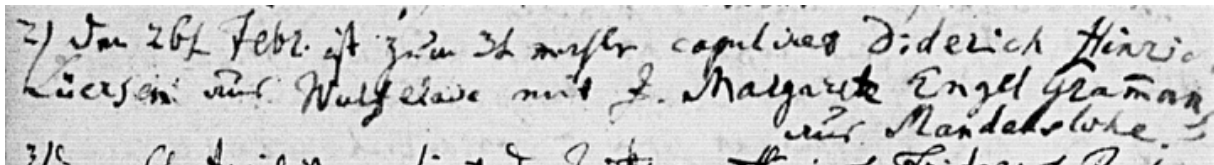 2) den 26t Febr. ist zum 3t mahle copuliret Diderich Hinric
Lüersen aus Wulfelade mit J. Margareth Engel Gramann
aus Mandelslohe.